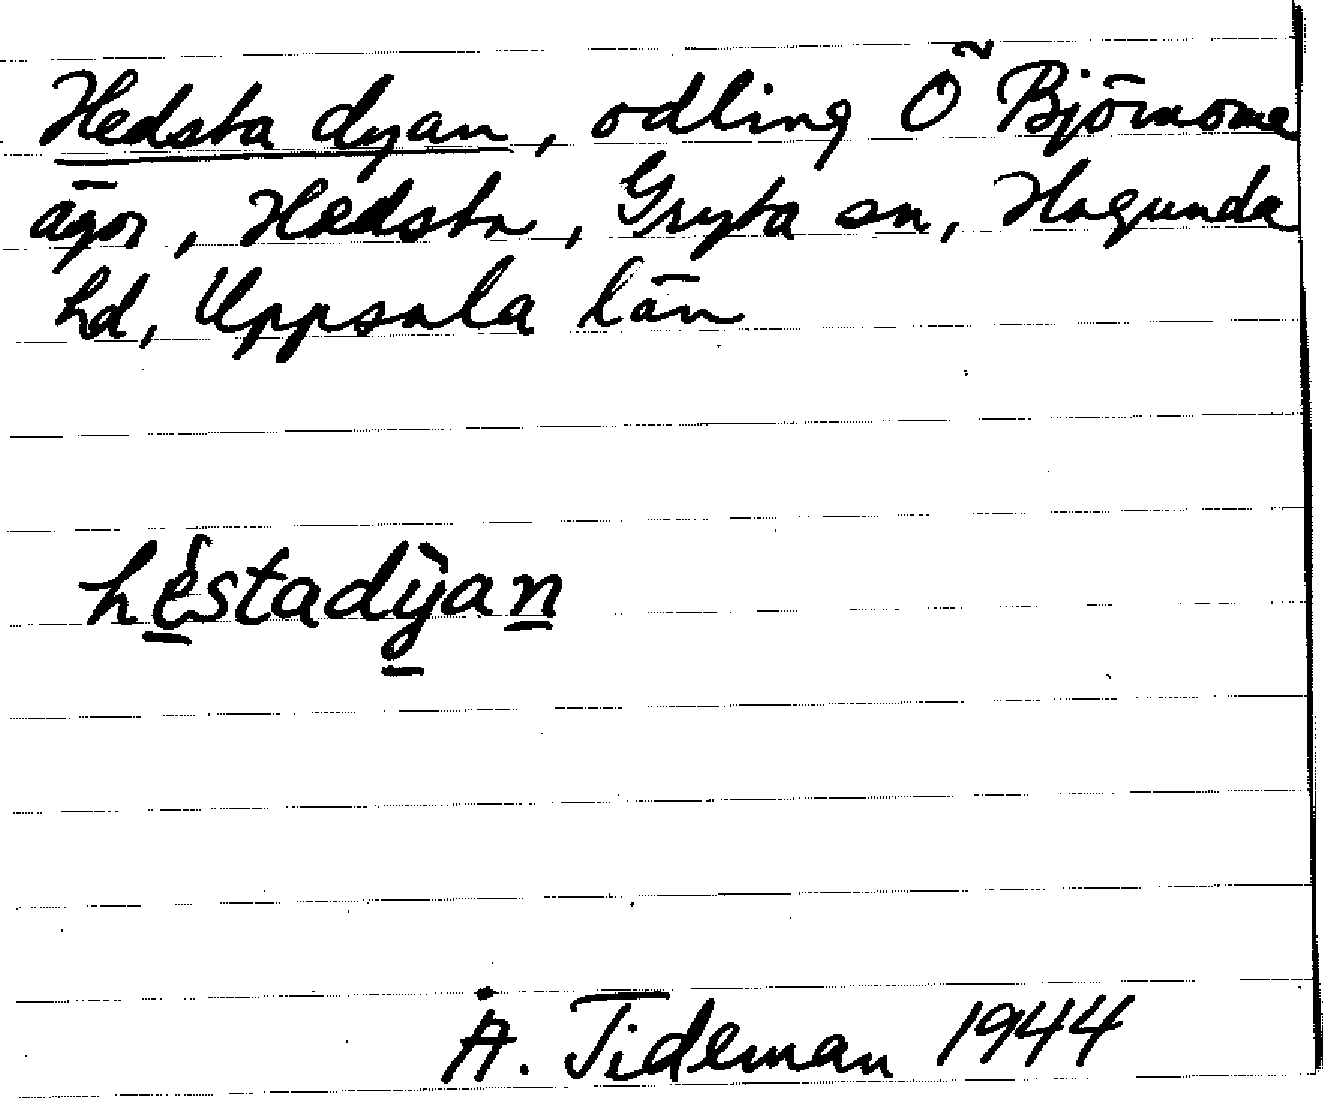 Hedsta dyan, odling Ö Björnome
ägor, Hedsta, Gryta sn, Hagunda
hd, Uppsala län
hèstadỳan
Å. Tideman 1944